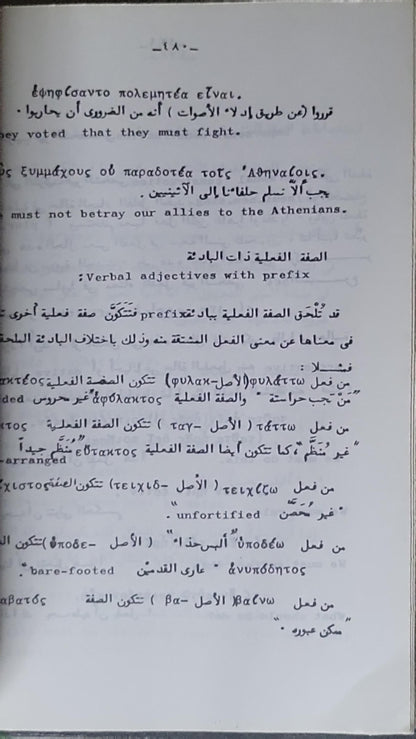 ـ٤٨٠ـ
ἐψηφίσαντο πολεμητέα εἶναι.
قرروا (عن طريق إدلاء الأصوات) أنه من الضرورى أن يحاربوا.
hey voted that they must fight.
ὺς ξυμμάχους οὐ παραδοτέα τοῖς Ἀθηναίοις.
يجب ألاّ نسلم حلفائنا إلى الآثينيين.
must not betray our allies to the Athenians.
الصفة الفعلية ذات البادئة
Verbal adjectives with prefix:
قد تُلْحَق الصفة الفعلية ببادئة prefix فتتكوَّن صفة فعلية أخرى
فى معناها عن معنى الفعل المشتقة منه وذلك باختلاف البادئة الملحقة
فمثلا :
من فعل φυλάττω (الأصل -φυλακ) تتكون الصفة الفعلية ακτέος
"مَنْ تجب حراسته" والصفة الفعلية ἀφύλακτος "غير محروس ded
من فعل τάττω (الأصل -ταγ) تتكون الصفة الفعلية κτος
"غير مُنَظَّم"، كما تتكون أيضا الصفة الفعلية εὔτακτος "مُنَظَّم جيداً
-arranged
من فعل τειχίζω (الأصل -τειχιδ) تتكون الصفة χιστος
"غير مُحَصَّن unfortified".
من فعل ὑποδέω "ألبس حذاء" (الأصل -ὑποδε) تتكون ال
ἀνυπόδητος "عارى القدمين bare-footed".
من فعل βαίνω (الأصل -βα) تتكون الصفة αβατός
"ممكن عبوره."